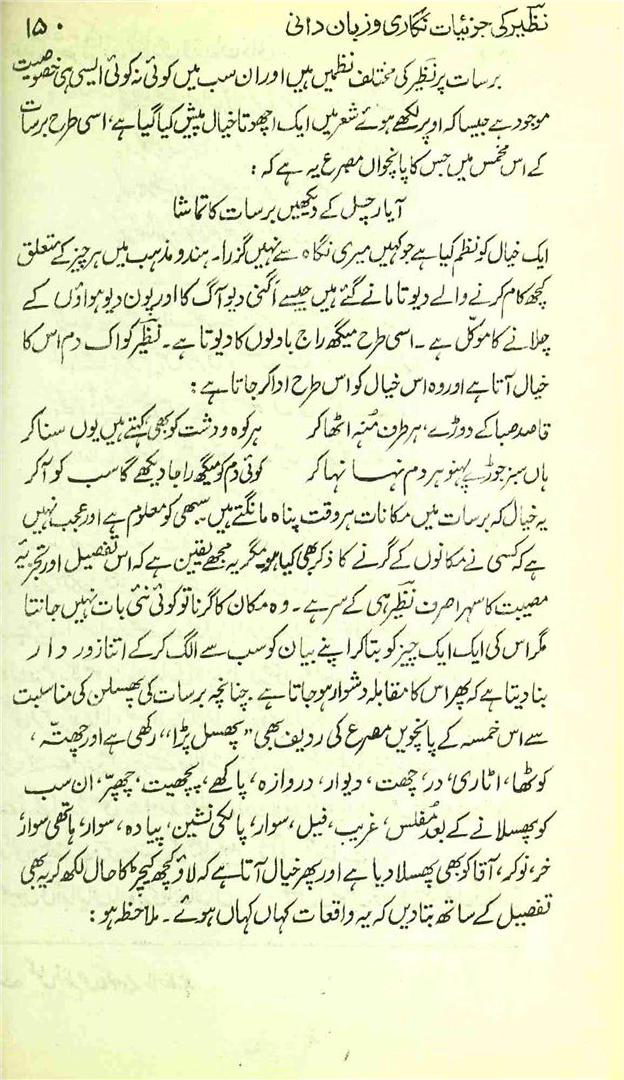 نظیر کی جزئیات نگاری و زبان دانی ۱۵۰
برسات پر نظیر کی مختلف نظمیں ہیں اور ان سب میں کوئی نہ کوئی ایسی ہی خصوصیت
موجود ہے جیسا کہ اوپر لکھے ہوئے شعر میں ایک اچھوتا خیال پیش کیا گیا ہے، اسی طرح برسات
کے اس مخمس میں جس کا پانچواں مصرع یہ ہے کہ :
آ یار چل کے دیکھیں برسات کا تماشا
ایک خیال کو نظم کیا ہے جو کہیں میری نگاہ سے نہیں گزرا۔ ہندو مذہب میں ہر چیز کے متعلق
کچھ کام کرنے والے دیوتا مانے گئے ہیں جیسے اگنی دیو آگ کا اور پون دیو ہواؤں کے
چلانے کا موکل ہے ۔ اسی طرح میگھ راج بادلوں کا دیوتا ہے ۔ نظیر کو اک دم اس کا
خیال آتا ہے اور وہ اس خیال کو اس طرح ادا کر جاتا ہے :
قاصد صبا کے دوڑے، ہر طرف مُنہ اٹھا کر ہر کوہ و دشت کو بھی کہتے ہیں یوں سنا کر
ہاں سبز جوڑے پہنو ہر دم نہا نہا کر کوئی دم کو میگھ راجا دیکھے گا سب کو آ کر
یہ خیال کہ برسات میں مکانات ہر وقت پناہ مانگتے ہیں سبھی کو معلوم ہے اور عجب نہیں
ہے کہ کسی نے مکانوں کے گرنے کا ذکر بھی کیا ہو مگر یہ مجھے یقین ہے کہ اس تفصیل اور تجزیۂ
مصیبت کا سہرا صرف نظیر ہی کے سر ہے ۔ وہ مکان کا گرنا تو کوئی نئی بات نہیں جانتا
مگر اس کی ایک ایک چیز کو بتا کر اپنے بیان کو سب سے الگ کر کے اتنا زور دار
بنا دیتا ہے کہ پھر اس کا مقابلہ دشوار ہو جاتا ہے ۔ چنانچہ برسات کی پھسلن کی مناسبت
سے اس خمسہ کے پانچویں مصرع کی ردیف بھی "پھسل پڑا" رکھی ہے اور چھتّہ ،
کوٹھا، اٹاری، در، چھت ، دیوار، دروازہ، پاکھے، پچھیت، چھپّر، ان سب
کو پھسلانے کے بعد مُفلس، غریب، فیل، سوار، پالکی نشین، پیادہ، سوار، ہاتھی سوار
خر، نوکر، آقا کو بھی پھسلا دیا ہے اور پھر خیال آتا ہے کہ لاؤ کچھ کیچڑ کا حال لکھ کر یہ بھی
تفصیل کے ساتھ بتا دیں کہ یہ واقعات کہاں کہاں ہوئے ۔ ملاحظہ ہو :